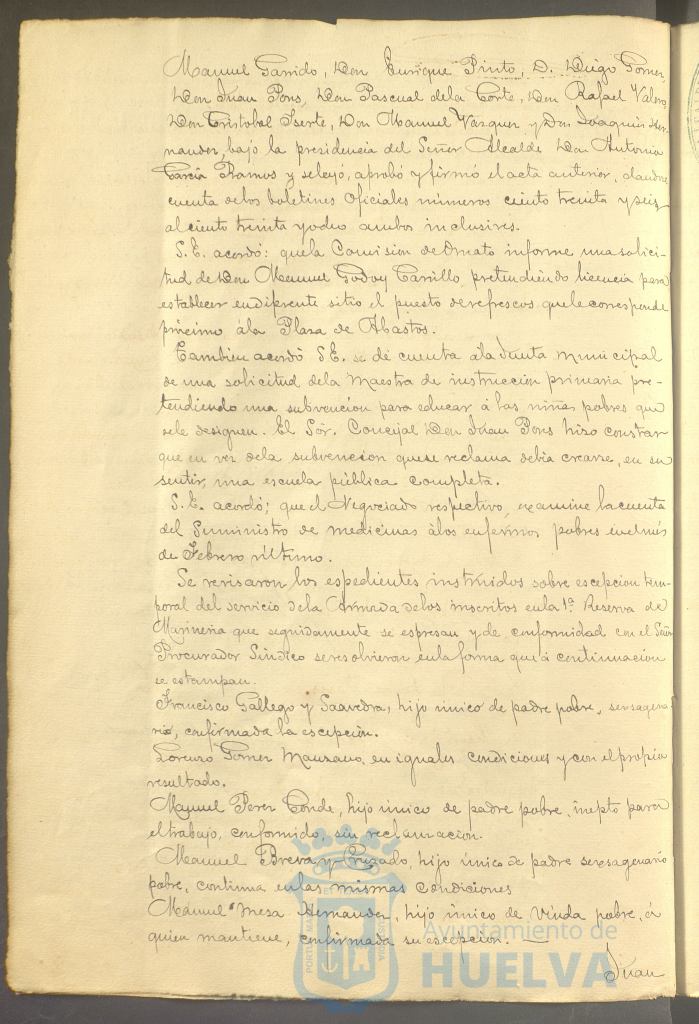 Manuel Garrido, Don Enrique Pinto, D. Diego Gomez,
Don Juan Pons, Don Pascual dela Corte, Don Rafael Valero,
Don Cristobal Iserte, Don Manuel Vazquez y Don Joaquin Her-
nandez, bajo la presidencia del Señor Alcalde Don Antonio
Garcia Ramos y seleyó, aprobó y firmó el acta anterior, dandose
cuenta delos boletines Oficiales números ciento treinta y seis
al ciento treinta y ocho ambos inclusives.
S.E. acordó: quela Comision de Ornato informe una solici-
tud de Don Manuel Godoy Carrillo pretendiendo licencia para
establecer en diferente sitio el puesto de refrescos que le corresponde
próximo ála Plaza de Abastos.
Tambien acordó S.E. se dé cuenta ála Junta Municipal
de una solicitud dela Maestra de instruccion primaria pre-
tendiendo una subvencion para educar á las niñas pobres que
sele designen. El Sór. Concejal Don Juan Pons hizo constar
que en vez dela subvencion que se reclama debia crearse, en su
sentir, una escuela pública completa.
S.E. acordó; que el Negociado respectivo, examine la cuenta
del Suministro de medicinas álos enfermos pobres en el mes
de Febrero último.
Se revisaron los espedientes instruidos sobre escepcion tem-
poral del servicio dela Armada delos inscritos en la 1ª Reserva de
Marineria que seguidamente se espresan y de conformidad con el Señor
Procurador Sindico se resolvieron en la forma que á continuacion
se estampan.
Francisco Gallego y Saavedra, hijo único de padre pobre, sexsagena-
rio, confirmada la escepcion.
Lorenzo Gomez Manzano, en iguales condiciones y con el propio
resultado.
Manuel Perez Conde, hijo único de padre pobre, inepto para
el trabajo, conformido, sin reclamacion.
Manuel Breva y Cruzado, hijo único de padre sexsagenario
pobre, continua en las mismas condiciones
Manuel Mesa Hernandez, hijo único de Viuda pobre, á
quien mantiene, confirmada su escepcion. —
Juan
Ayuntamiento de
HUELVA